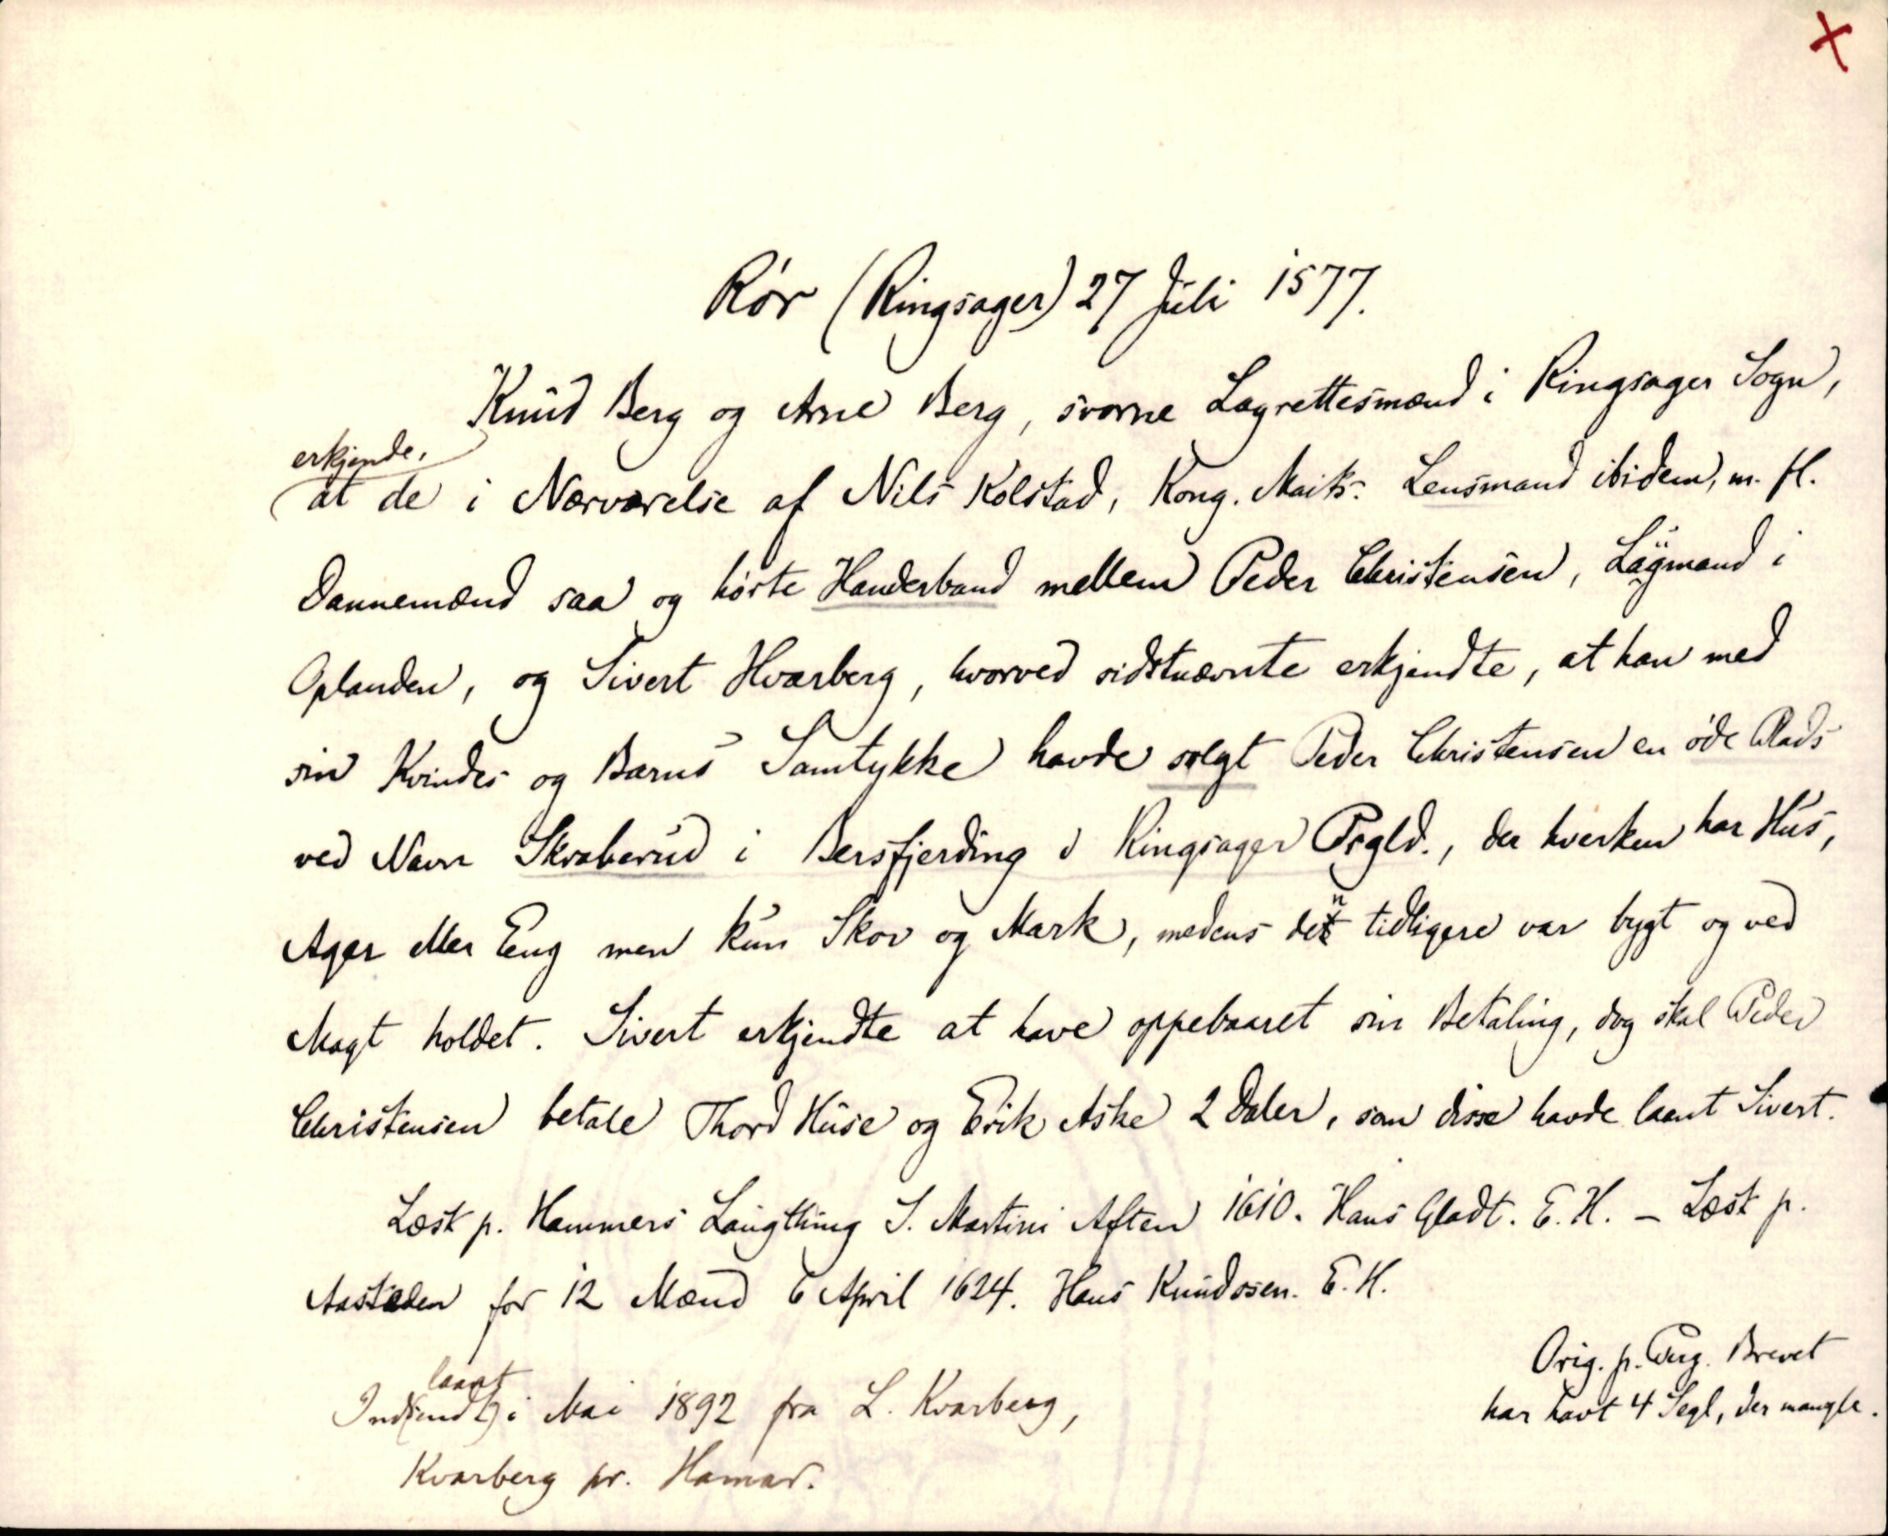 Rór (Ringsager) 27 Juli 1577.
Knud Berg og Arne Berg, svorne Lagrettesmænd i Ringsager Sogn,
erkjende,
at de i Nærværelse af Nils Kolstad, Kong. Maits. Lensmand ibidem, m. fl.
Dannemænd saa og hórte Handerband mellem Peder Christensen, Lagmand i
Oplanden, og Sivert Hvarberg, hvorved sidstnævnte erkjendte, at han med
sin Kvindes og Barns Samtykke havde solgt Peder Christensen en óde Plads
ved Navn Skraberud i Bersfjerding i Ringsager Prgld., der hverken har Hus,
Ager eller Eng men kun Skov og Mark, medens den tidligere var bygt og ved
Magt holdet. Sivert erkjendte at have oppebaaret sin Betaling, dog skal Peder
Christensen betale Thord Huse og Erik Aske 2 Daler, som disse havde laant Sivert.
Læst p. Hammers Laugthing S. Martini Aften 1610. Hans Gladt. E. H. – Læst p.
Aastæden for 12 Mænd 6 April 1624. Hans Knudssen. E. H.
Orig. p. Perg. Brevet
har havt 4 Segl, der mangle.
laant
Ind(sendt) i Mai 1892 fra L. Kvarberg,
Kvarberg pr. Hamar.